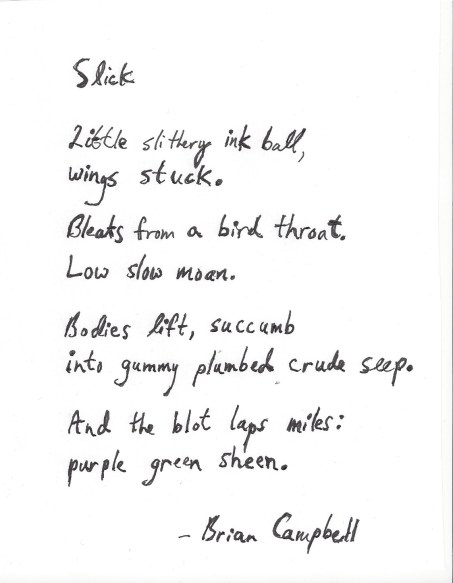 Slick
Little slithery ink ball,
wings stuck.
Bleats from a bird throat.
Low slow moan.
Bodies lift, succumb
into gummy plumbed crude seep.
And the blot laps miles:
purple green sheen.
- Brian Campbell